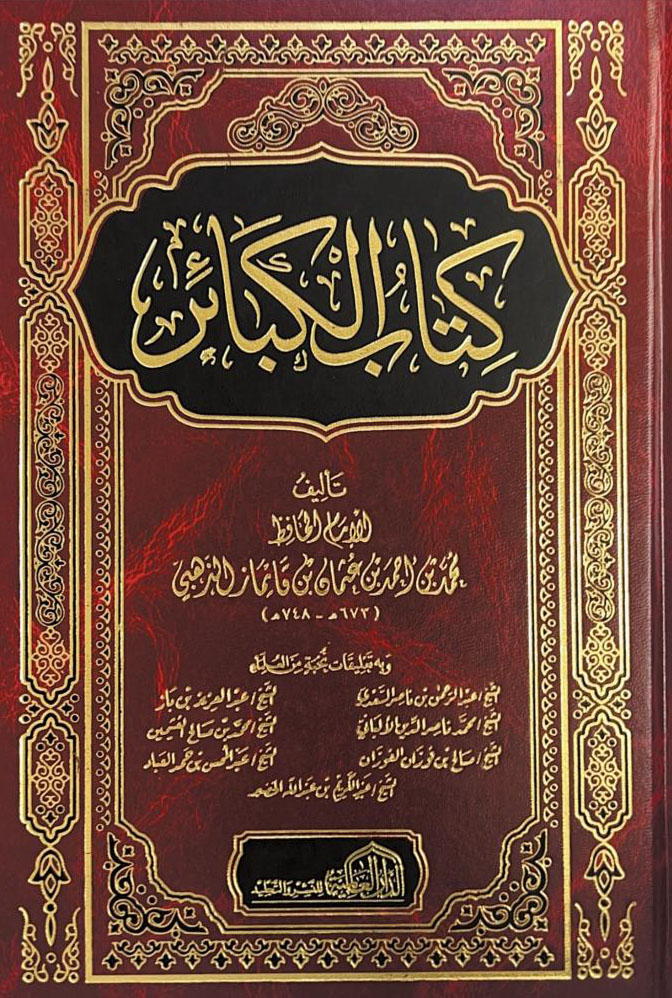 كِتَابُ الْكَبَائِرِ
تَأليفُ
الإمام الحَافِظ
محمّد بن احمد بن عُثمان بن قايماز الذهبيّ
(٦٧٣هـ - ٧٤٨هـ)
وبه تعليقات نخبة من العلماء
الشيخ/عبد الرحمن بن ناصر السعدي الشيخ/عبد العزيز بن باز
الشيخ/محمّد ناصر الدّين الألبانيّ الشيخ/محمّد بن صالح العثيمين
الشيخ/صالح بن فوزان الفوزان الشيخ/عبد المحسن بن حمد العباد
الشيخ/عبد الكريم بن عبد الله الخضير
الدار العالمية للنشر والتجليد